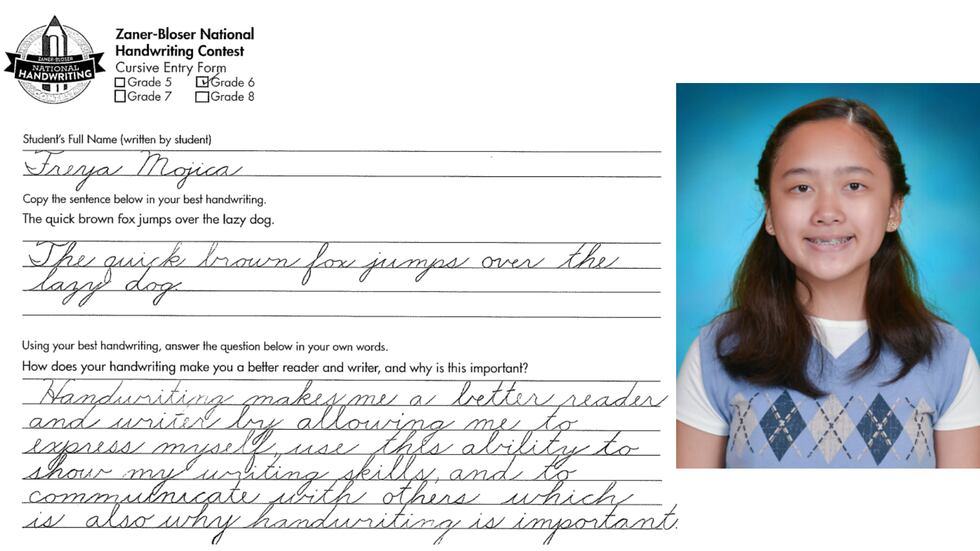 ZANER-BLOSER
NATIONAL
HANDWRITING
Zaner-Bloser National
Handwriting Contest
Cursive Entry Form
Grade 5 Grade 6
Grade 7 Grade 8
Student's Full Name (written by student)
Freya Mojica
Copy the sentence below in your best handwriting.
The quick brown fox jumps over the lazy dog.
The quick brown fox jumps over the
lazy dog.
Using your best handwriting, answer the question below in your own words.
How does your handwriting make you a better reader and writer, and why is this important?
Handwriting makes me a better reader
and writer by allowing me to
express myself, use this ability to
show my writing skills, and to
communicate with others which
is also why handwriting is important.